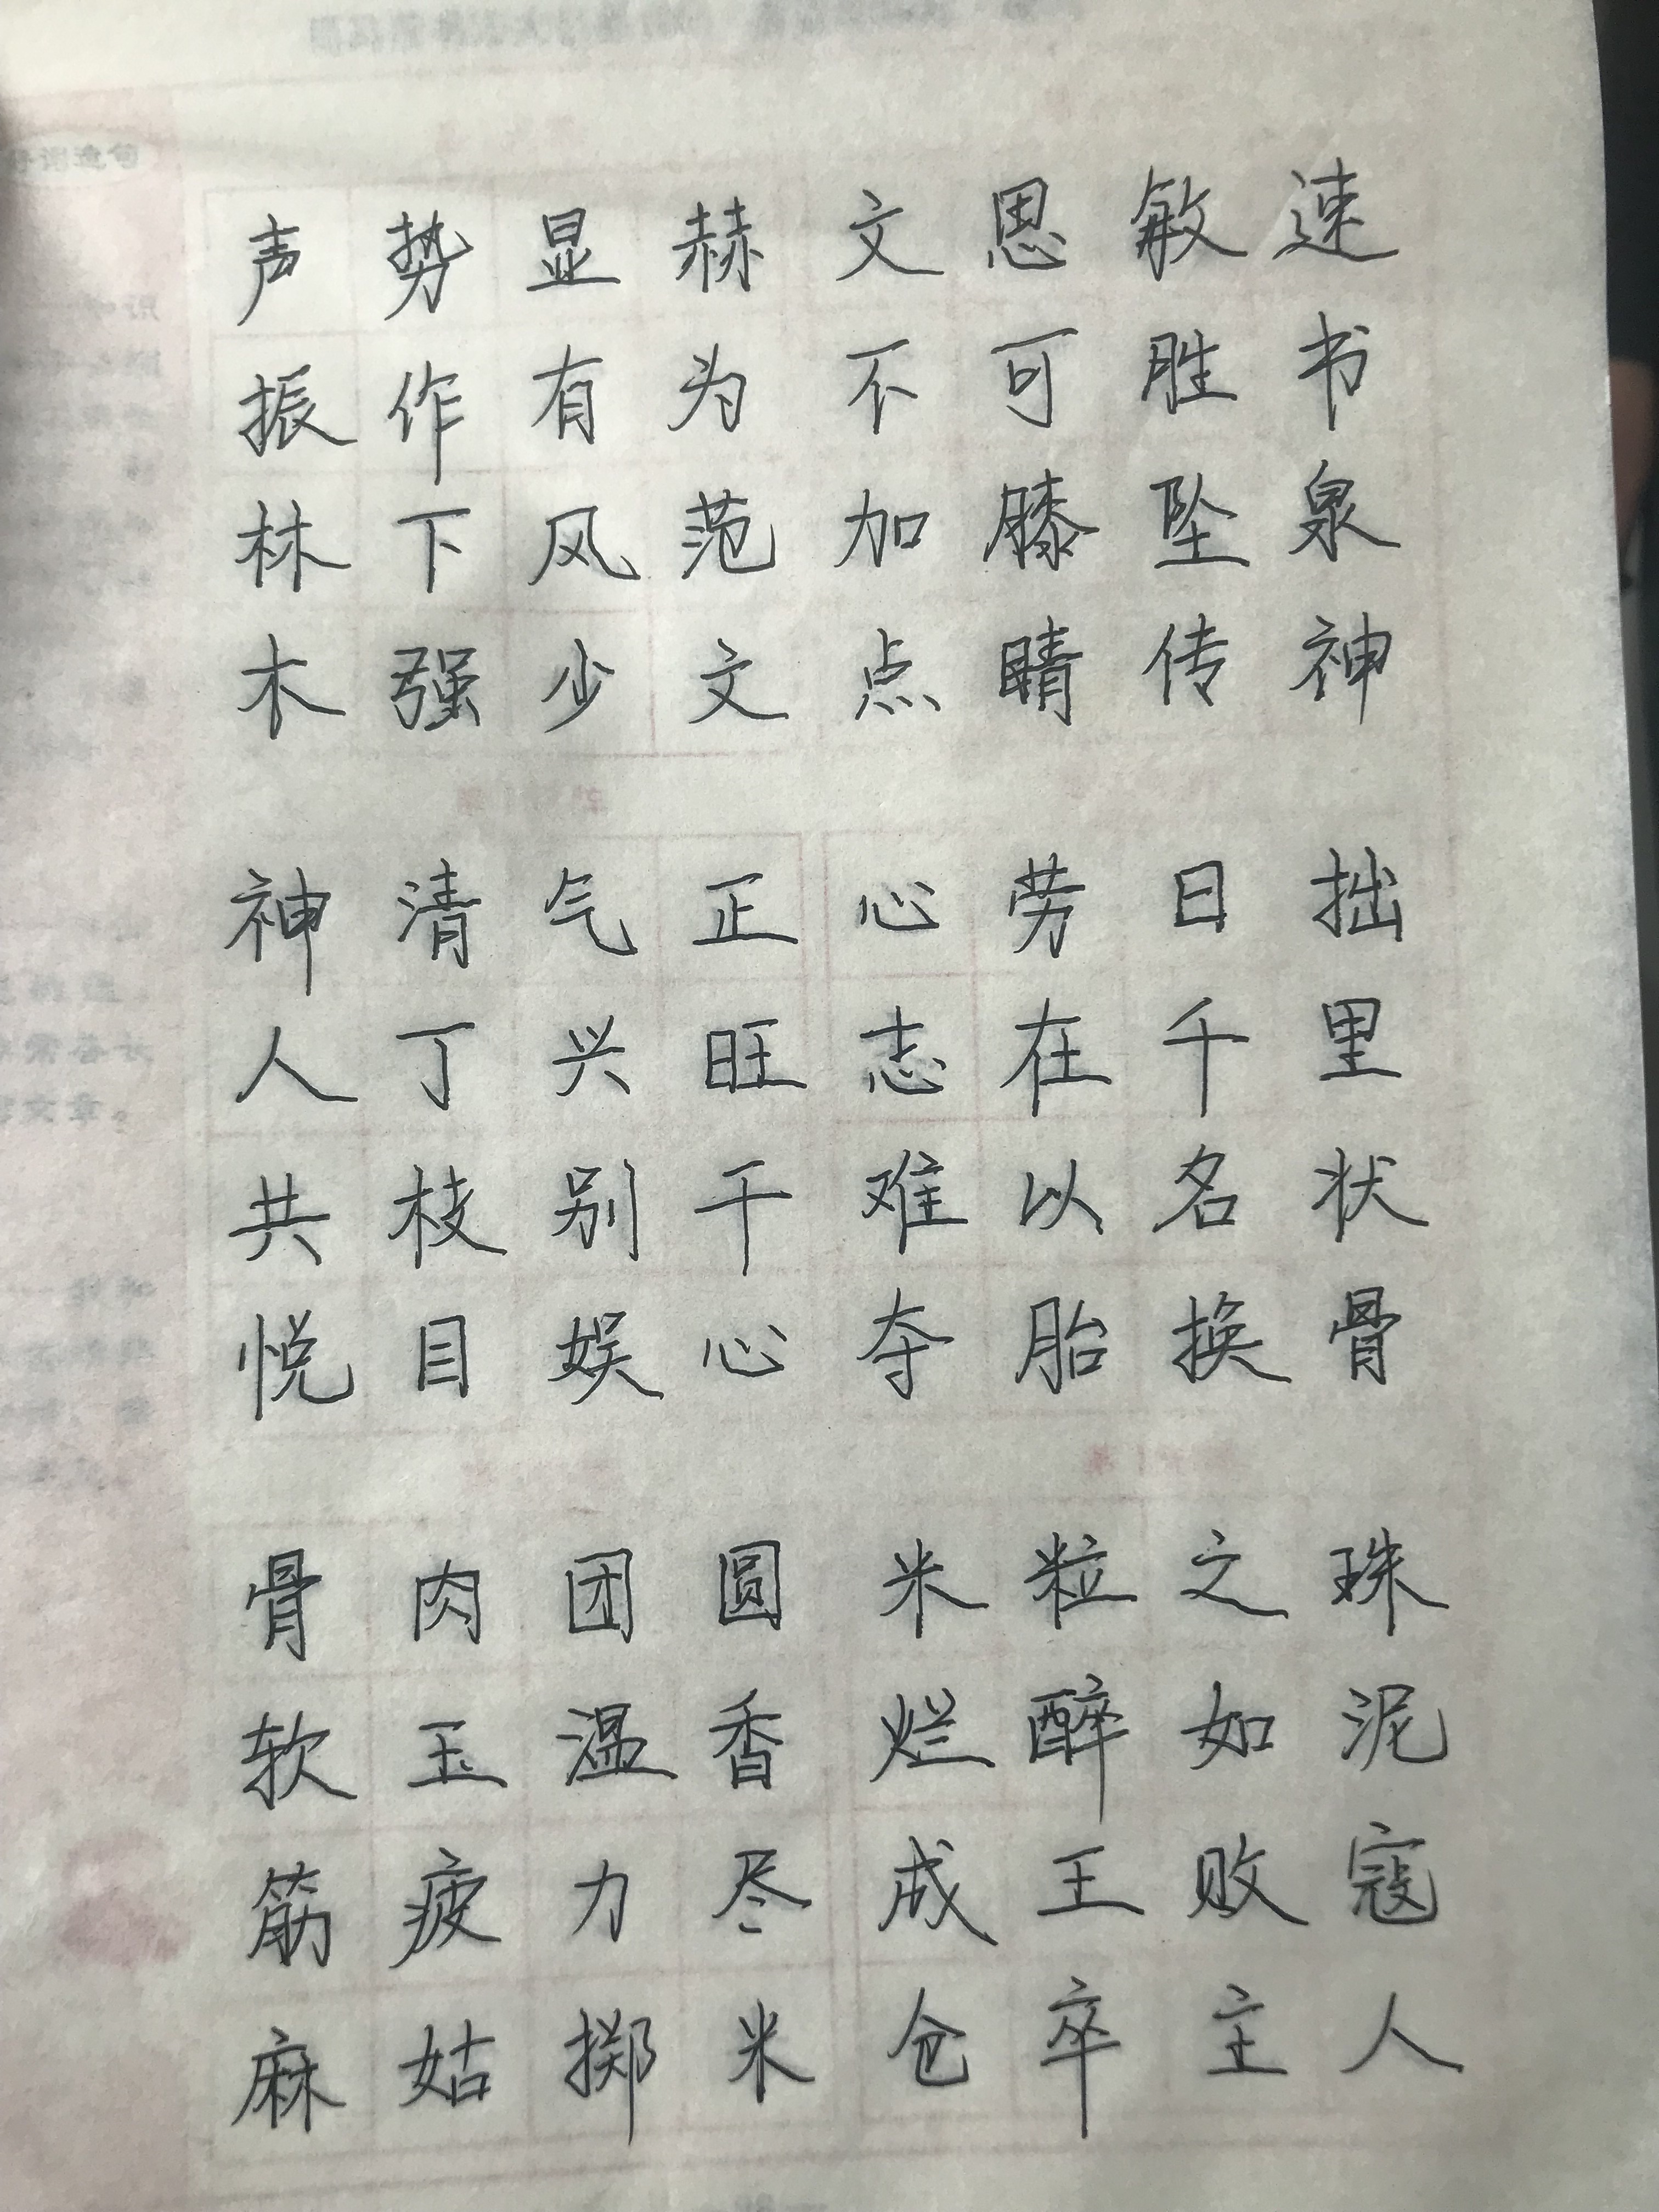 声势显赫文思敏速
振作有为不可胜书
林下风范加膝坠泉
木强少文点睛传神
神清气正心劳日拙
人丁兴旺志在千里
共枝别干难以名状
悦目娱心夺胎换骨
骨肉团圆米粒之珠
软玉温香烂醉如泥
筋疲力尽成王败寇
麻姑掷米仓卒主人